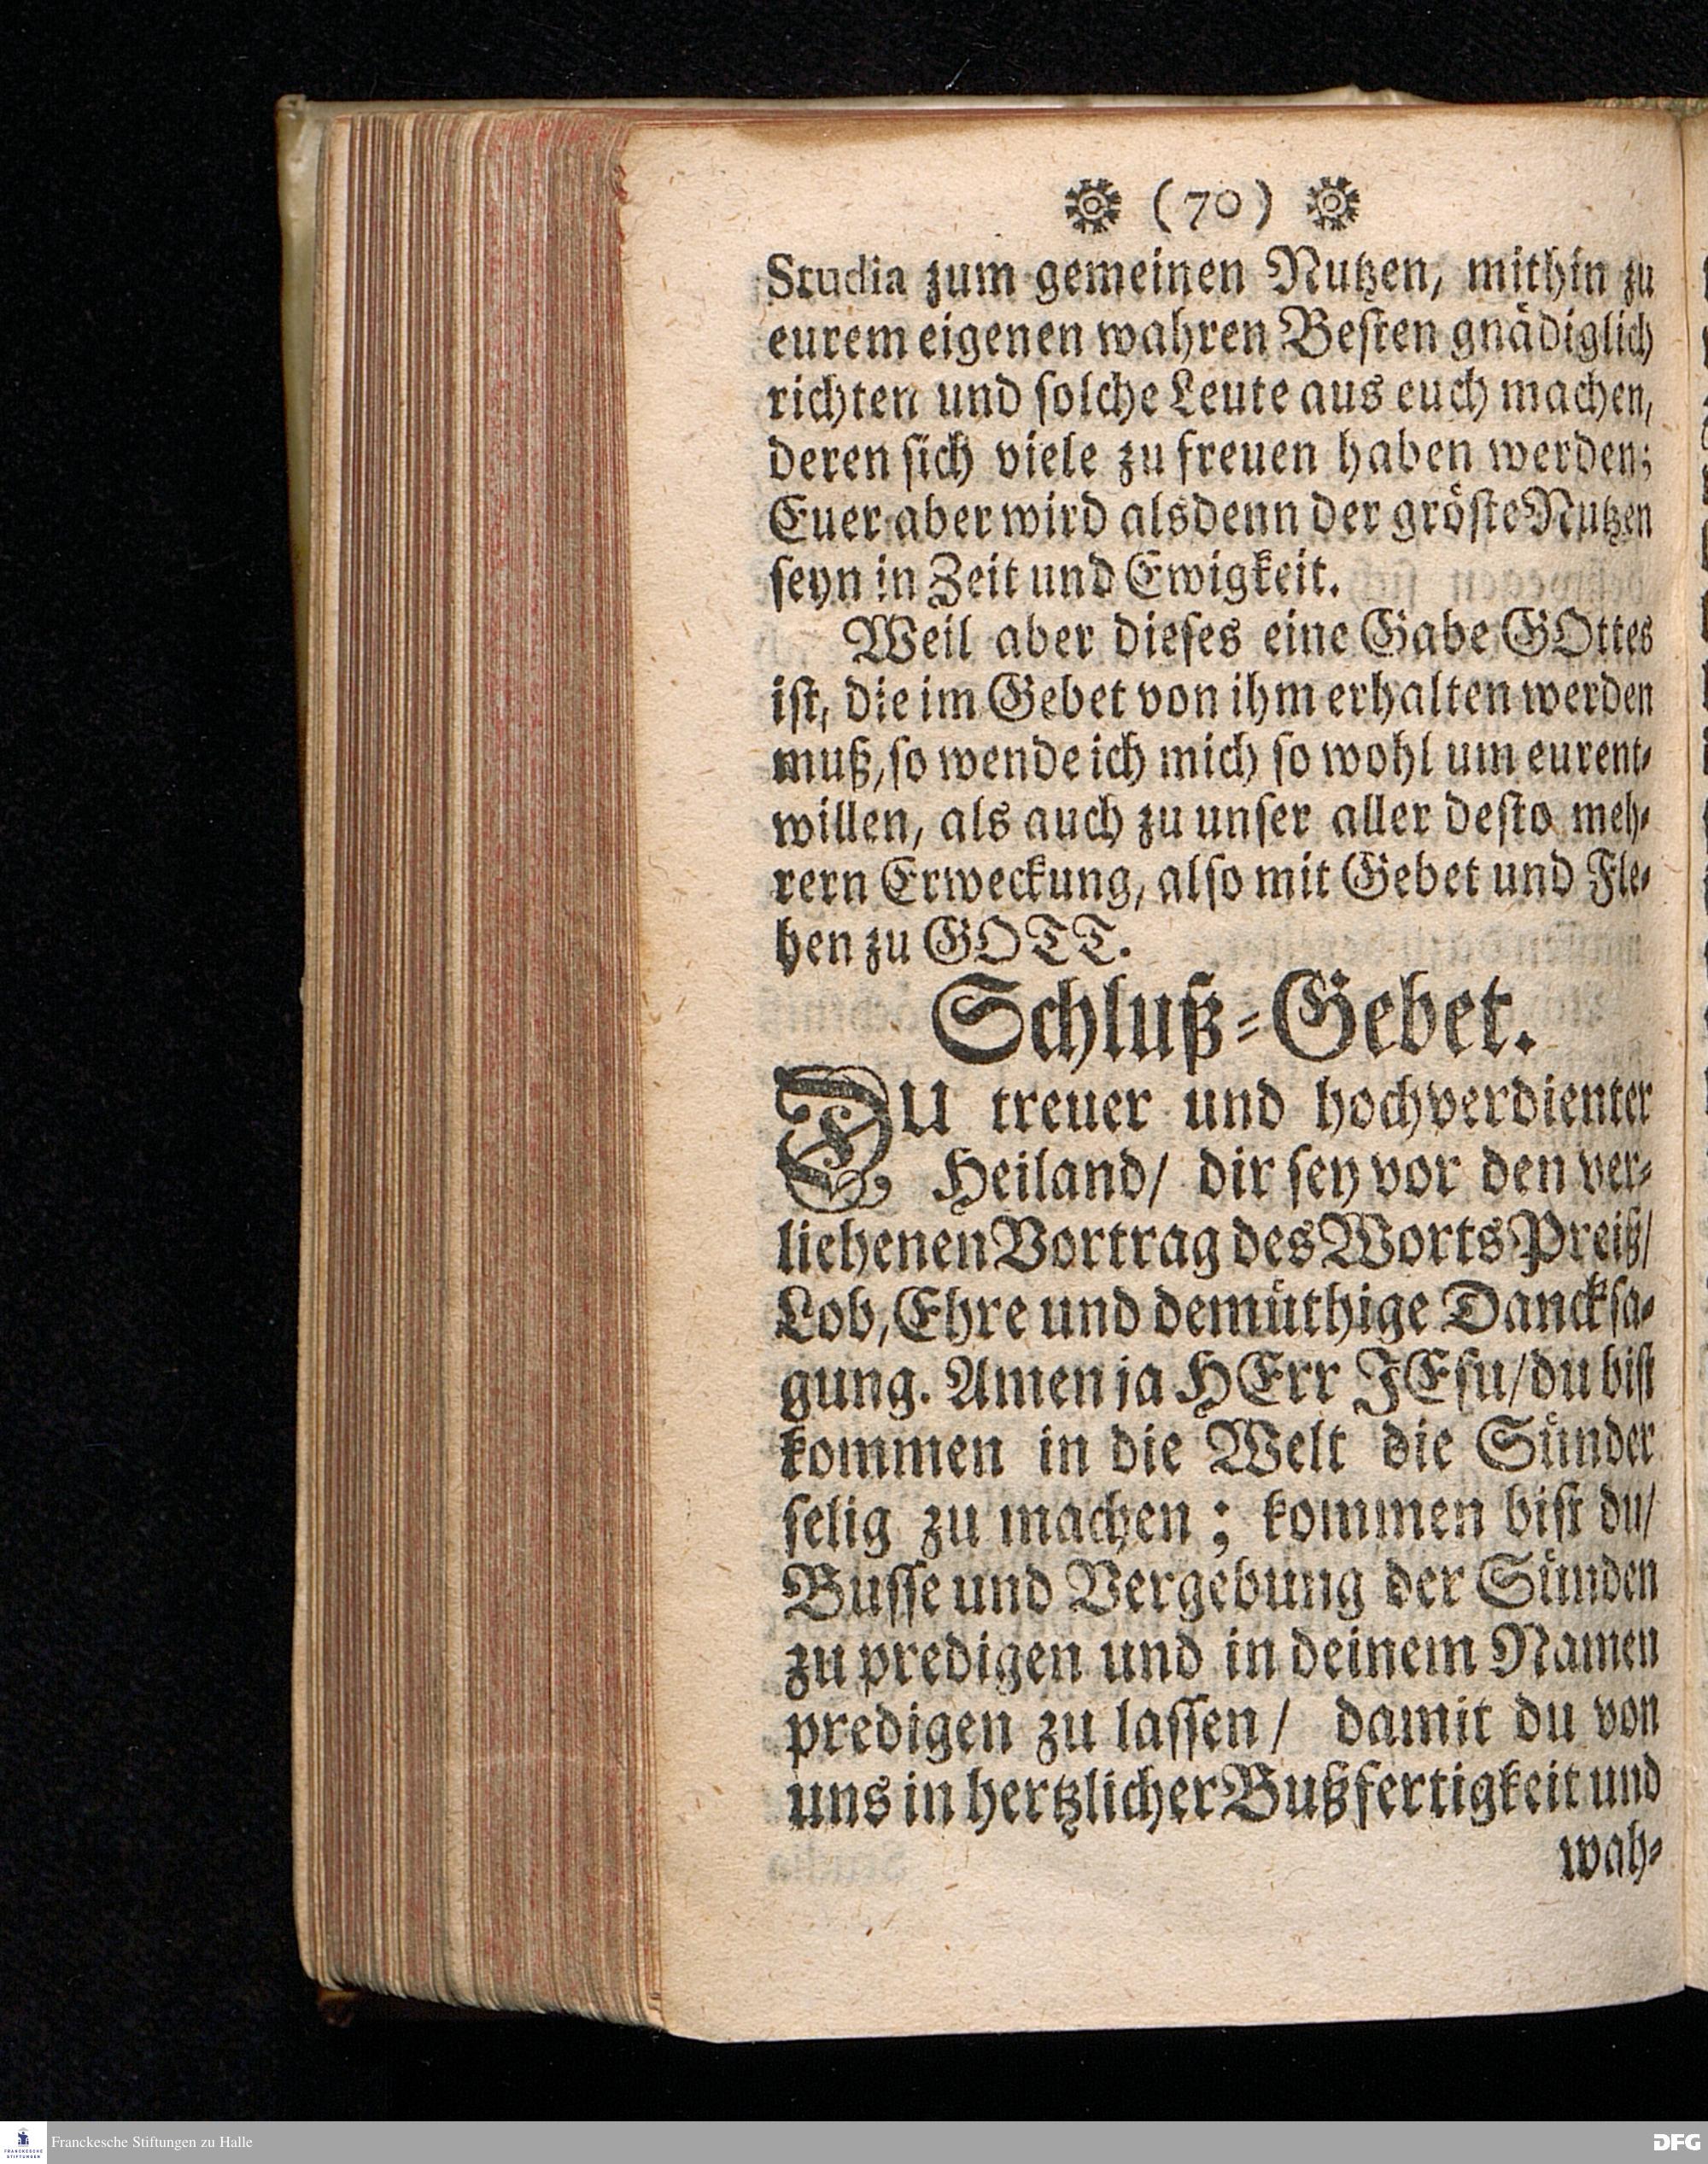 (70)
Studia zum gemeinen Nutzen, mithin zu
eurem eigenen wahren Besten gnädiglich
richten und solche Leute aus euch machen,
deren sich viele zu freuen haben werden;
Euer aber wird alsdenn der gröste Nutzen
seyn in Zeit und Ewigkeit.
Weil aber dieses eine Gabe GOttes
ist, die im Gebet von ihm erhalten werden
muß, so wende ich mich so wohl um eurent-
willen, als auch zu unser aller desto meh-
rern Erweckung, also mit Gebet und Fle-
hen zu GOTT.
Schluß-Gebet.
DU treuer und hochverdienter
Heiland/ dir sey vor den ver-
liehenen Vortrag des Worts Preiß/
Lob, Ehre und demüthige Dancksa-
gung. Amen ja HErr JEsu/ du bist
kommen in die Welt die Sünder
selig zu machen; kommen bist du/
Busse und Vergebung der Sünden
zu predigen und in deinem Namen
predigen zu lassen/ damit du von
uns in hertzlicher Bußfertigkeit und
wah-
FRANCKESCHE
STIFTUNGEN
Franckesche Stiftungen zu Halle
DFG